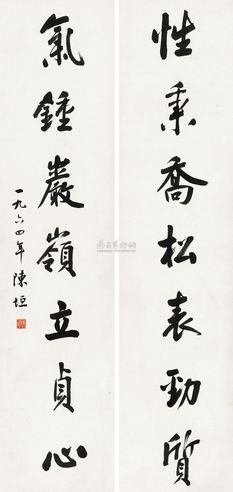 性秉喬松表勁質
氣鍾巖嶺立貞心
一九六四年 陳垣